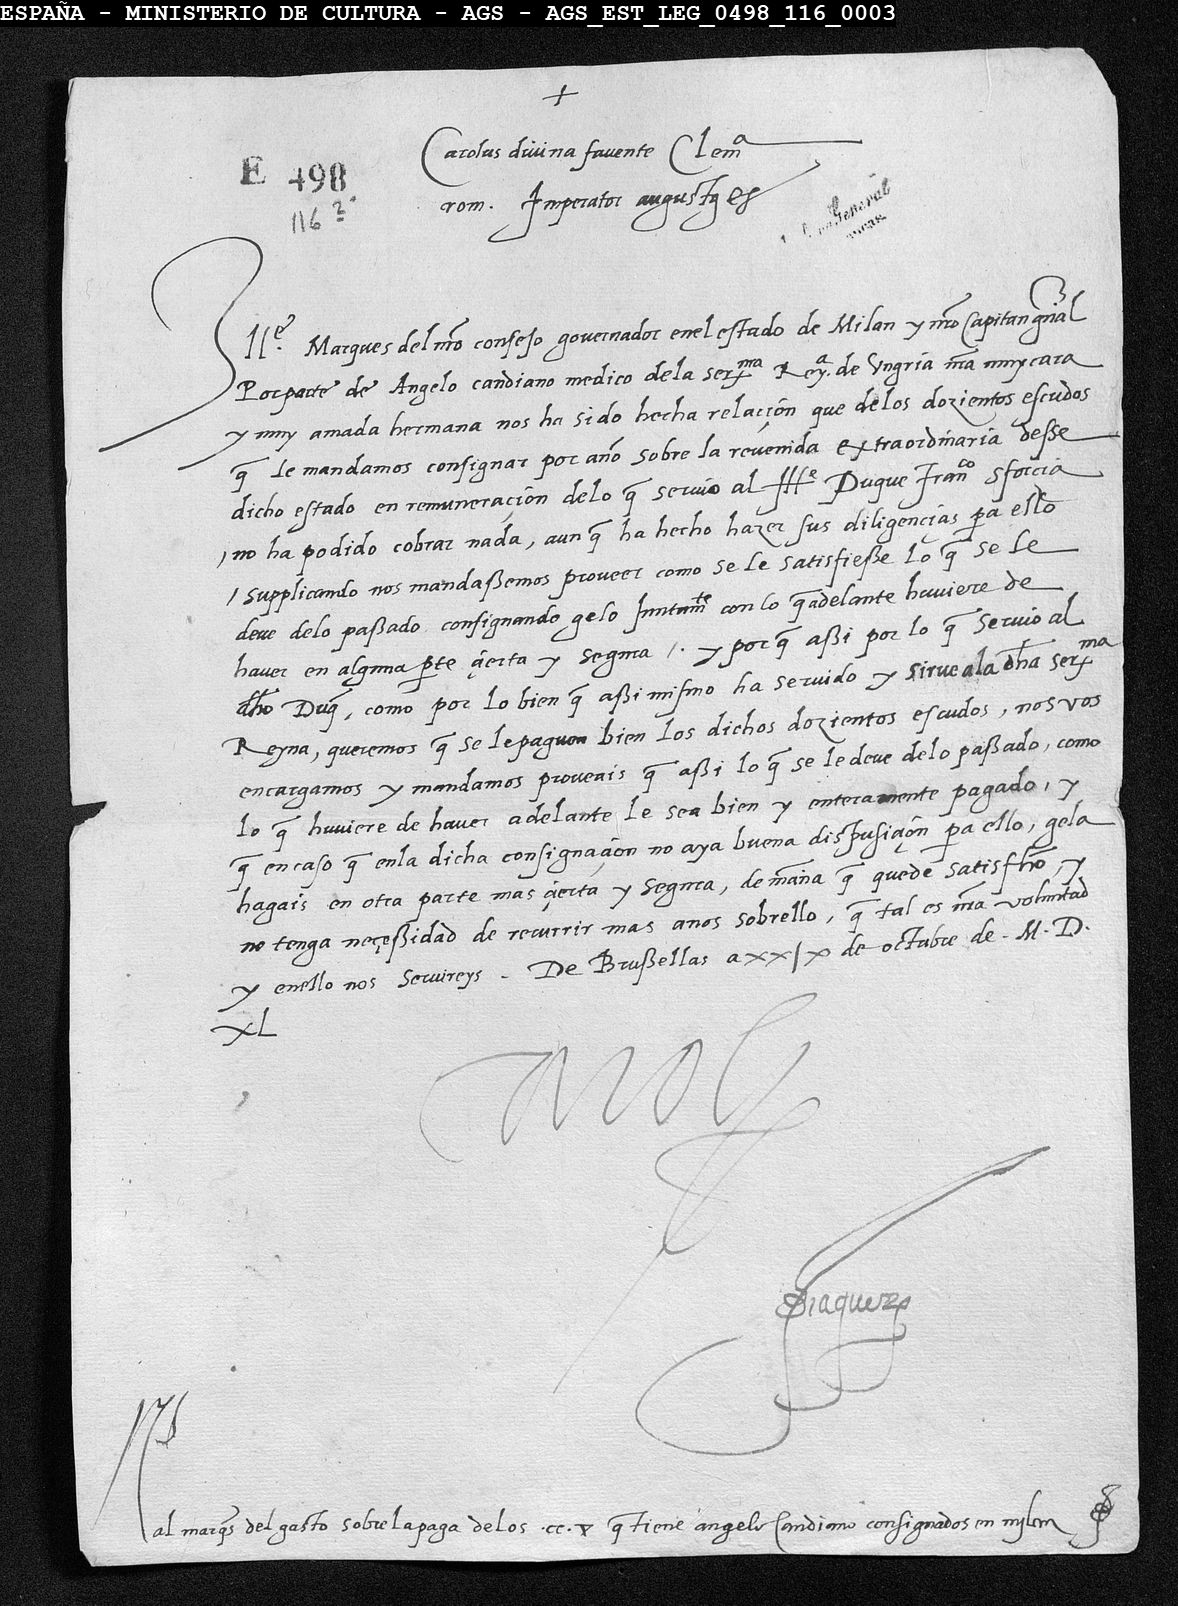 ESPAÑA - MINISTERIO DE CULTURA - AGS - AGS_EST_LEG_0498_116_0003
+
Carolus divina favente Clemª
rom. Imperator augustus &c
E 498
116 2º
General
Illᵉ. Marques del nr̃o consejo governador en el estado de Milan y nr̃o Capitan gñal
Por parte de Angelo candiano medico dela serᵐᵃ Reyª. de Ungria nr̃a muy cara
y muy amada hermana nos ha sido hecha relaçion que delos dozientos escudos
q̃ le mandamos consignar por año sobre la revenida extraordinaria desse
dicho estado en remuneraçion delo q̃ servio al Illᵉ Duque Franᶜᵒ Sforcia
/ no ha podido cobrar nada, aunq̃ ha hecho hazer sus diligençias pa ello
/ supplicando nos mandassemos proveer como se le satisfiesse lo q̃ se le
deve delo passado consignando gelo Juntamᵗᵉ con lo q̃ adelante huviere de
haver en alguna pte çierta y segura /. y porq̃ assi por lo q̃ servio al
dh̃o Duq̃, como por lo bien q̃ assi mismo ha servido y sirve ala dh̃a serᵐᵃ
Reyna, queremos q̃ se le paguen bien los dichos dozientos escudos, nos vos
encargamos y mandamos proveais q̃ assi lo q̃ se le deve delo passado, como
lo q̃ huviere de haver adelante le sea bien y enteramente pagado, y
q̃ en caso q̃ enla dicha consignaçion no aya buena dispusiçion pa ello, gela
hagais en otra parte mas çierta y segura, de mãna q̃ quede satisfh̃o, y
no tenga neçessidad de recurrir mas anos sobrello, q̃ tal es nr̃a voluntad
y enello nos servireys - De Brussellas a xxix de octubre de - M. D.
XL
Carolus
Idiaquez
al marq̃s del gasto sobre la paga delos .cc. v q̃ tiene angelo Candiano consignados en mylan